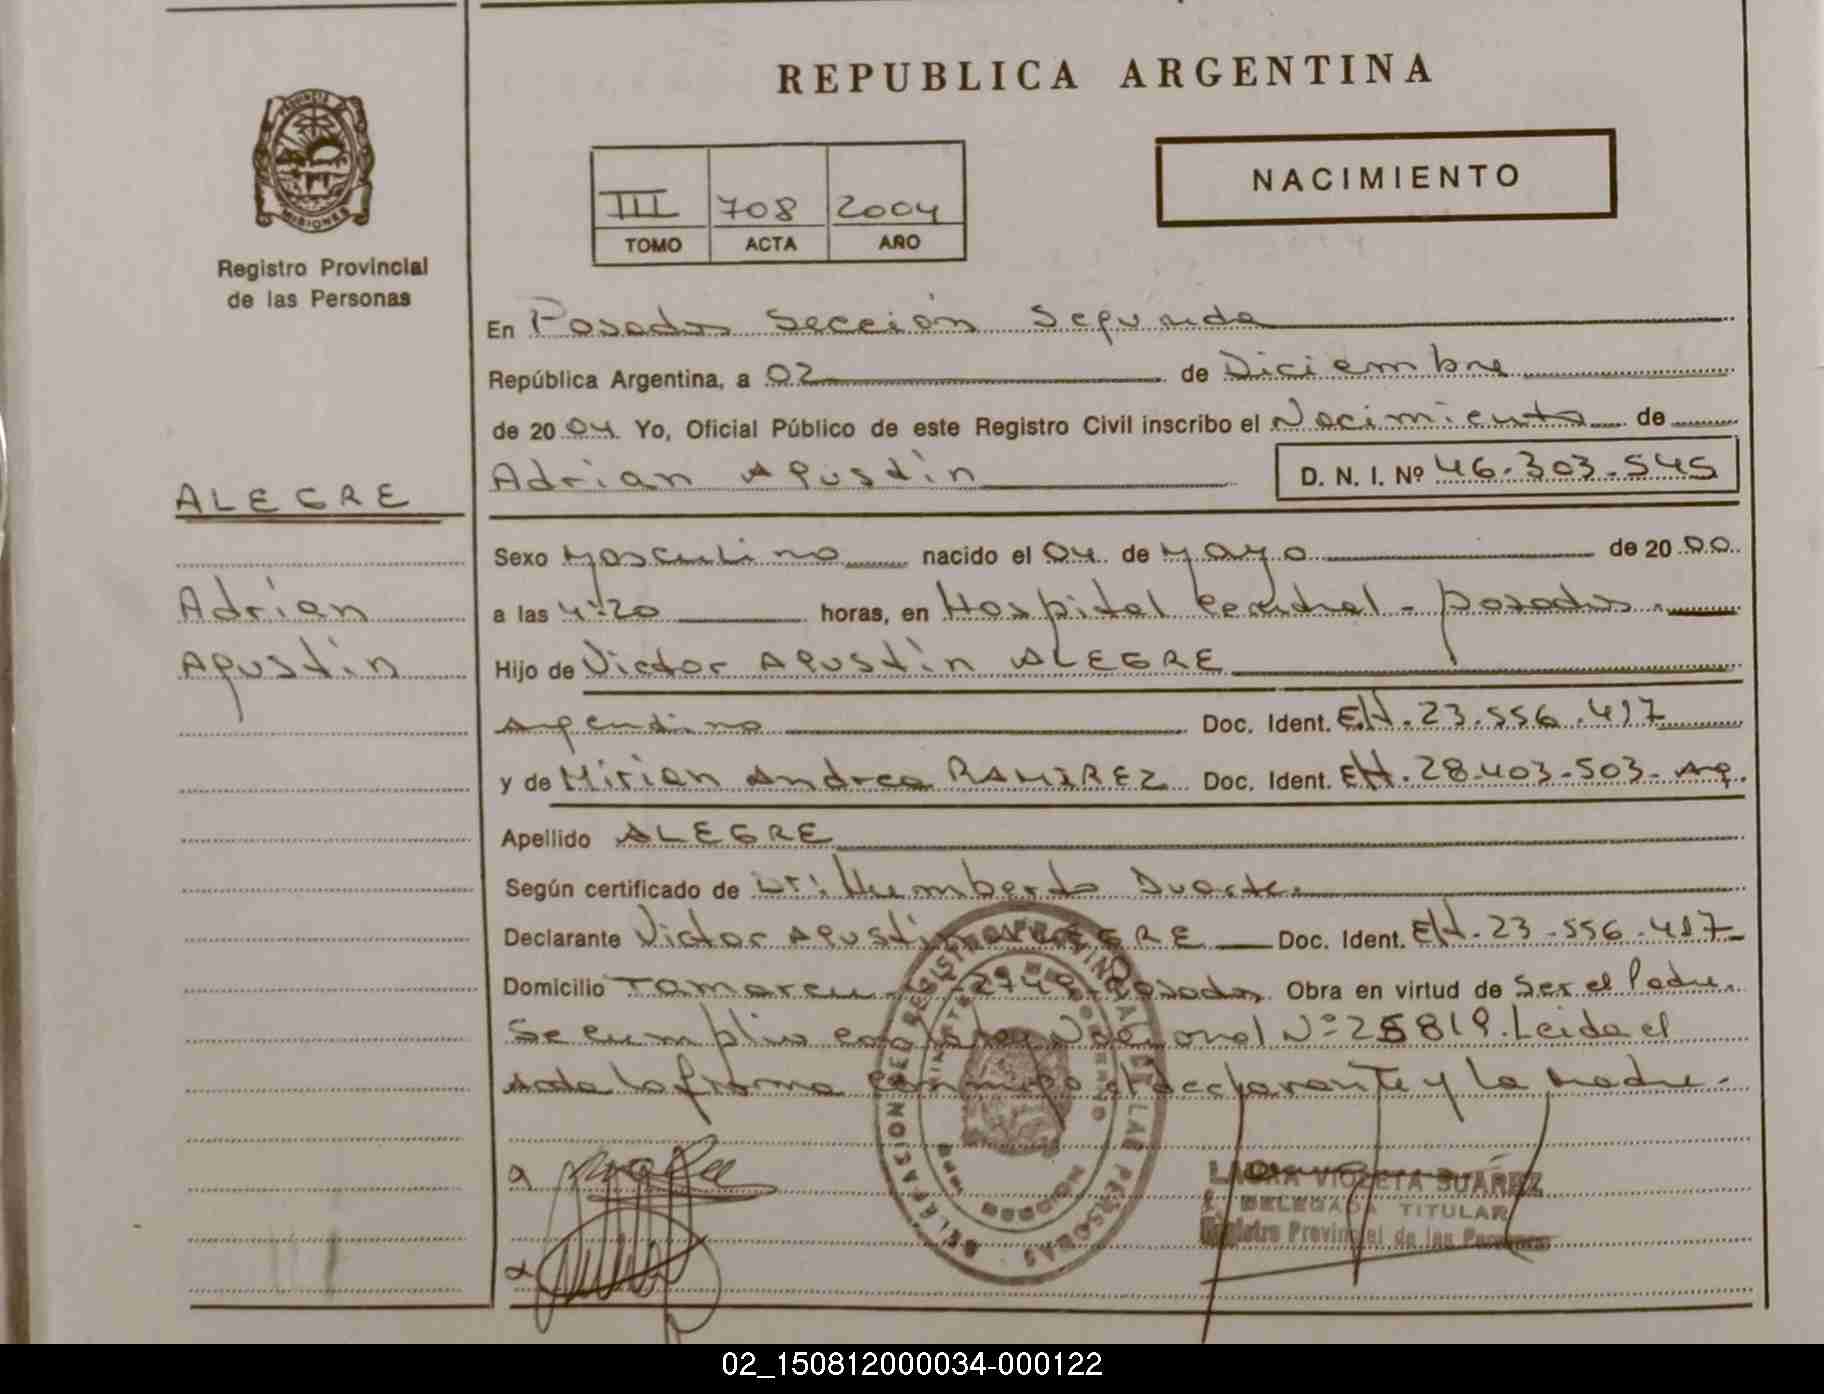 REPUBLICA ARGENTINA
NACIMIENTO
III 708 2004
TOMO ACTA AÑO
PROVINCIA
MISIONES
Registro Provincial
de las Personas
ALEGRE
Adrian
Agustin
En Posadas Sección Segunda
República Argentina, a 02 de Diciembre
de 2004 Yo, Oficial Público de este Registro Civil inscribo el Nacimiento de
Adrian Agustin D. N. I. Nº 46.303.545
Sexo Masculino nacido el 04 de Mayo de 2000
a las 4:20 horas, en Hospital Central - Posadas.
Hijo de Victor Agustin ALEGRE
Argentino Doc. Ident. EH. 23.556.417
y de Mirian Andrea RAMIREZ Doc. Ident. EH. 28.403.503- Arg.
Apellido ALEGRE
Según certificado de Dr: Humberto Duarte.
Declarante Victor Agustin ALEGRE Doc. Ident. EH. 23.556.417
Domicilio 2749 Posadas Obra en virtud de Ser el Padre.
Se cumplio con la Ley Nacional Nº 25819. Leida el
acta la firma conmigo el declarante y la madre.
LAURA VIOLETA SUAREZ
DELEGADA TITULAR
Registro Provincial de las Personas
02_150812000034-000122